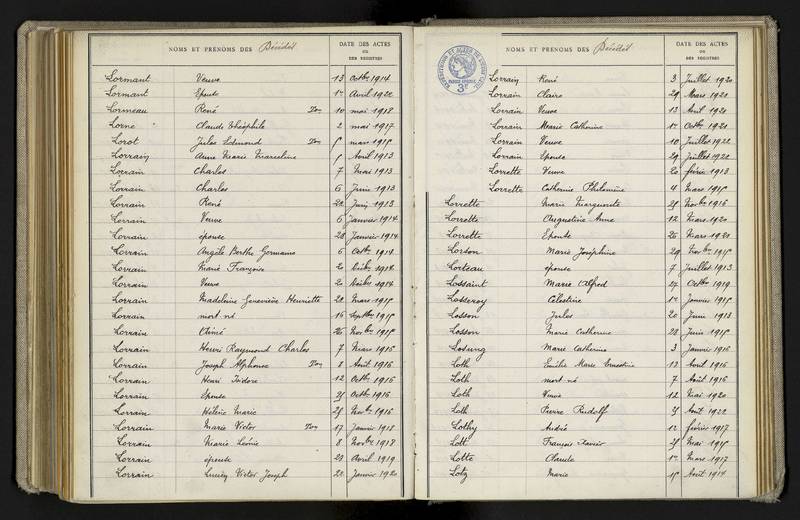 NOMS ET PRÉNOMS DES Décédés
DATE DES ACTES
OU
DES REGISTRES
Lormant Veuve 13 Octbre 1914
Lormant Epouse 1er Avril 1922
Lormeau René 10 mai 1918
Lorne Claude Théophile 2 mai 1917
Lorot Jules Edmond mars 1915
Lorrain Anne Marie Marceline Avril 1913
Lorrain Charles 7 Mai 1913
Lorrain Charles 6 Juin 1913
Lorrain René 22 Juin 1913
Lorrain Veuve 6 Janvier 1914
Lorrain épouse 28 Janvier 1914
Lorrain Angèle Berthe Germaine 6 Octbre 1914
Lorrain Marie Françoise 2 1914
Lorrain Veuve 2 1914
Lorrain Madeleine Geneviève Henriette 22 Mars 1915
Lorrain mort né 16 Septbre 1915
Lorrain 26 Novbre 1915
Lorrain Henri Raymond Charles 7 Mars 1916
Lorrain Joseph Alphonse 8 Août 1916
Lorrain Henri Isidore 12 Octbre 1916
Lorrain Epouse Octbre 1916
Lorrain Hélène Marie Novbre 1916
Lorrain Marie Victor 17 Janvier 1918
Lorrain Marie Léonie 8 Novbre 1918
Lorrain épouse 23 Avril 1919
Lorrain Lucien Victor Joseph 22 Janvier 1920
NOMS ET PRÉNOMS DES Décédés
DATE DES ACTES
OU
DES REGISTRES
3F
Lorrain René 3 Juillet 1920
Lorrain Claire 29 Mars 1921
Lorrain Veuve 13 Avril 1921
Lorrain Marie Catherine 1er Octbre 1921
Lorrain Veuve 10 Juillet 1922
Lorrain Epouse 29 Juillet 1922
Lorrette Veuve 20 février 1913
Lorrette Catherine Philomène 4 Mars 1915
Lorrette Marie Marguerite Novbre 1916
Lorrette Augustine Anne 12 Mars 1920
Lorrette Epouse 26 Mars 1920
Lorson Marie Joséphine 29 Novbre 1915
Lorteau épouse 7 Juillet 1913
Lossaint Marie Alfred 27 Octbre 1919
Losseroy Célestine 1er Janvier 1915
Losson Jules 20 Juin 1913
Losson Marie Catherine 23 Juin 1915
Losung Marie Catherine 3 Janvier 1916
Loth Emélie Marie Ernestine 13 Août 1916
Loth mort né 7 Août 1916
Loth Veuve 12 Mai 1920
Loth Pierre Rudolf Août 1922
Lothy André 12 février 1917
Lott François Xavier Mai 1915
Lotte Claude 1er Mars 1917
Lotz Marie Août 1914